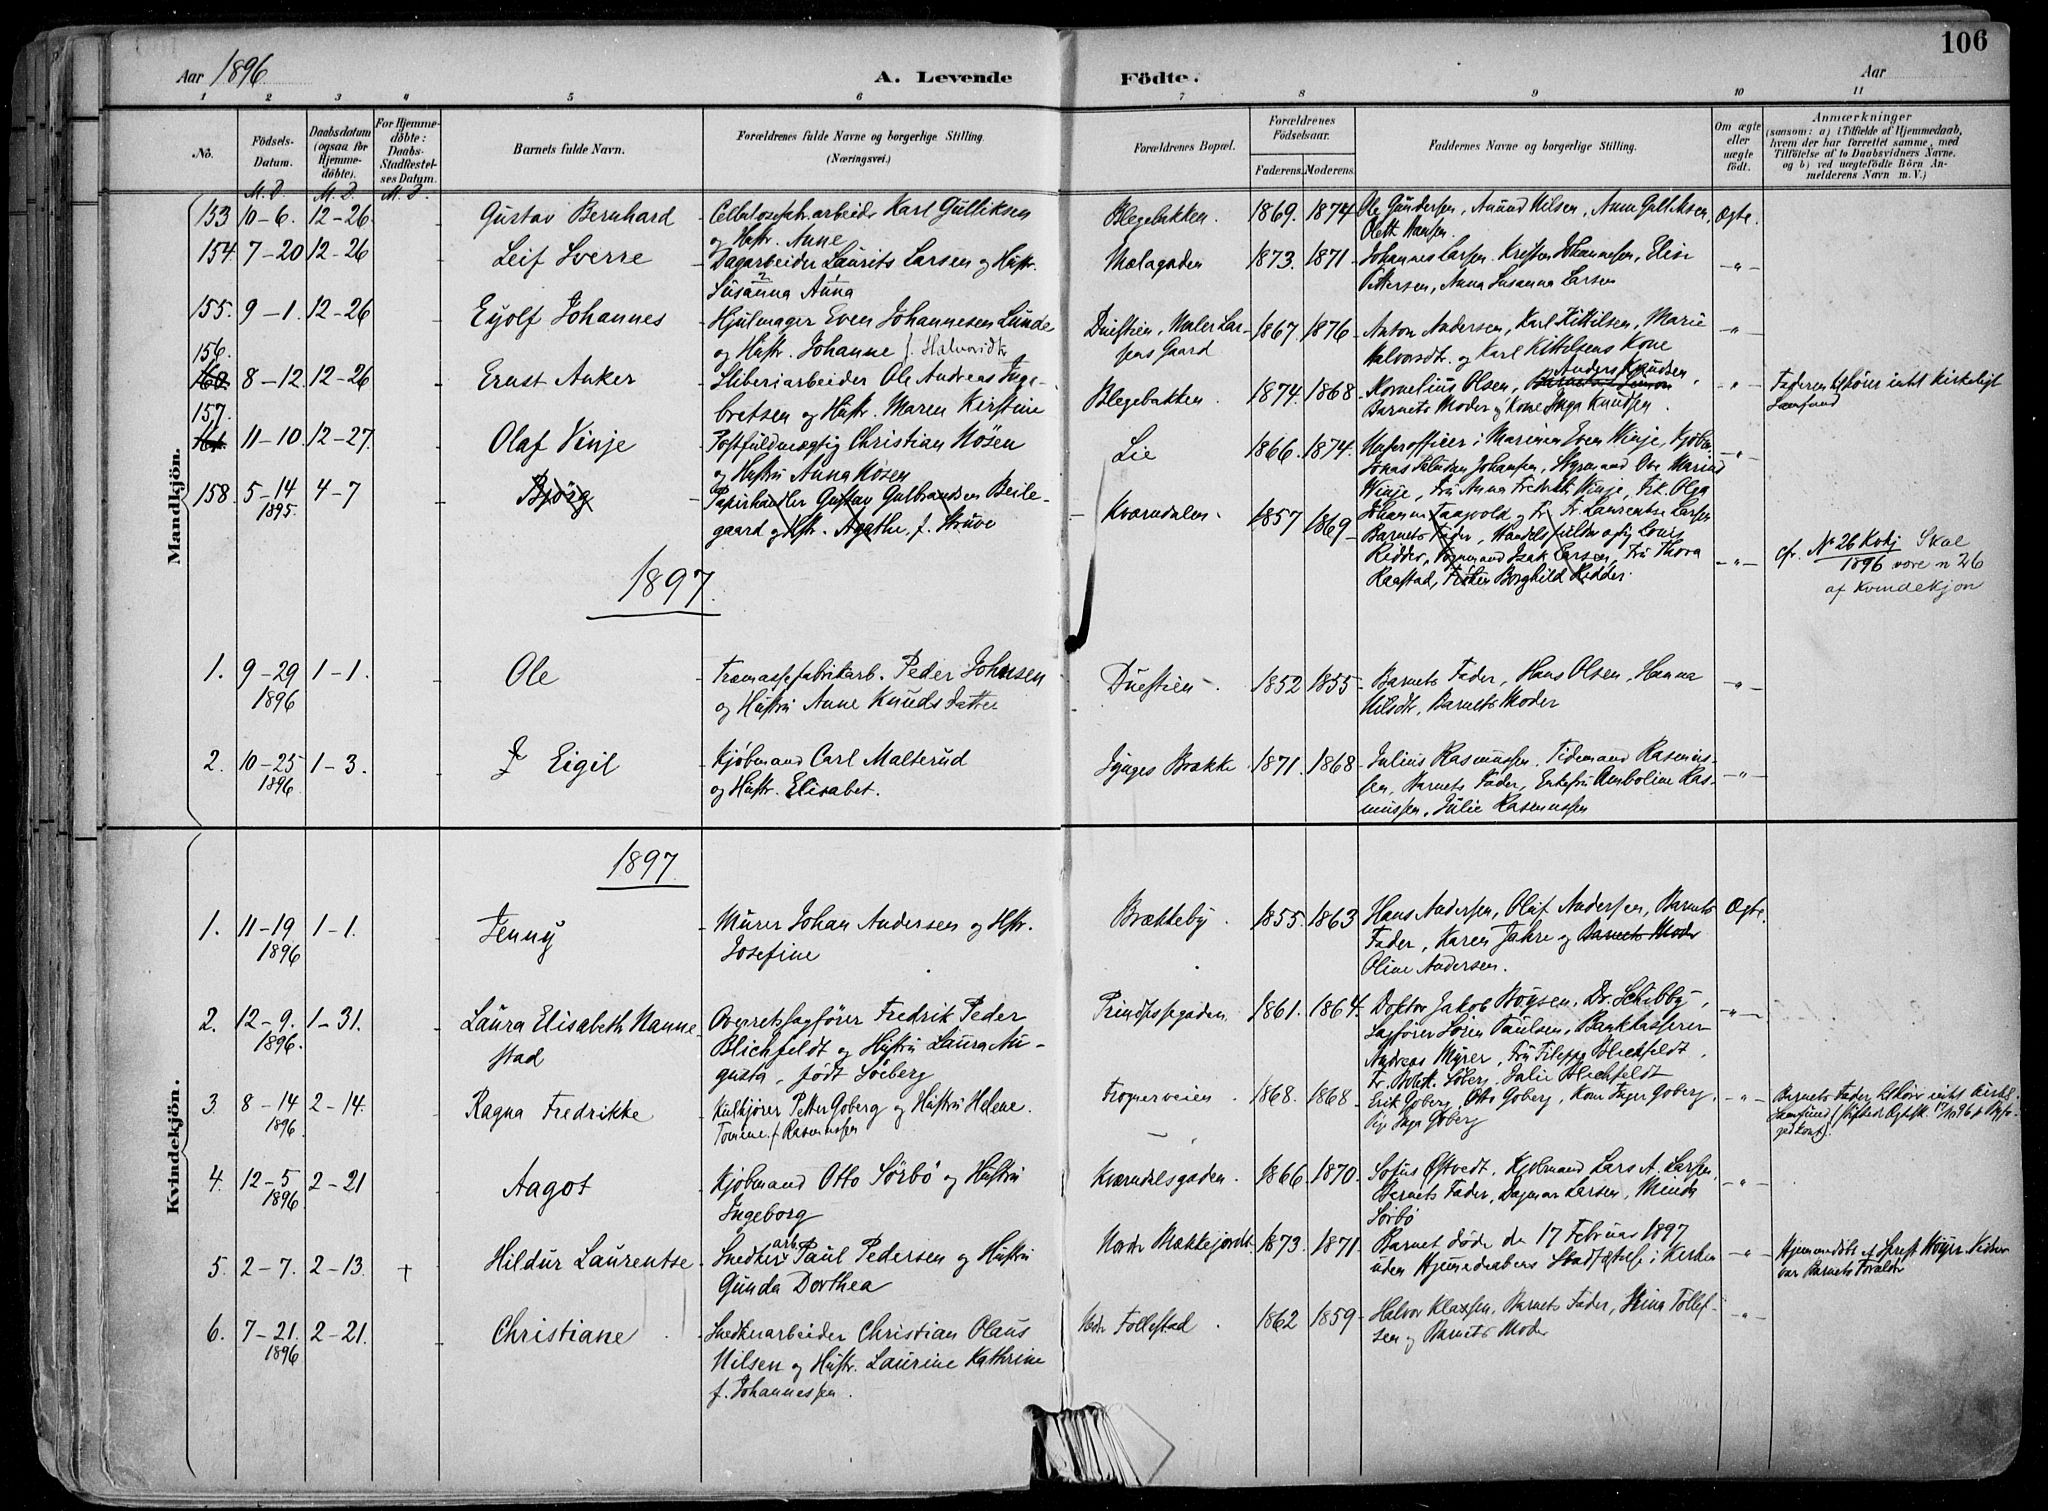 106
Aar 1896
A. Levende Födte.
Aar
1 2 3 4 5 6 7 8 9 10 11
No.
Födsels-Datum.
Daabsdatum (ogsaa for Hjemme-döbte).
For Hjemme-döbte: Daabs-Stadfæstel-ses Datum.
Barnets fulde Navn.
Forældrenes fulde Navne og borgerlige Stilling. (Næringsvei.)
Forældrenes Bopæl.
Forældrenes Födselsaar.
Faderens. Moderens.
Faddernes Navne og borgerlige Stilling.
Om ægte eller uægte födt.
Anmærkninger
(saasom: a) i Tilfælde af Hjemmedaab,
hvem der har forrettet samme, med
Tilföielse af to Daabsvidners Navne,
og b) ved uægtefödte Börn An-
melderens Navn m. V.)
M. D. M. D. M. D.
Mandkjön.
153 10-6. 12-26. Gustav Bernhard Cellulosefabr.arbeider Karl Gulliksen
og Hustr. Anne
Blegebakken. 1869. 1874 Ole Gundersen, Amund Nilsen, Anne Gulliksen, Ægte.
Olett Hansen.
154. 7-20 12-26 Leif Sverre Dagarbeider Laurits Larsen og Hustr.
Susanna Anna
Mælagaden 1873. 1871 Johannes Larsen. Kristen Johannesen, Elise -"-
Pettersen, Anna Susanna Larsen
155. 9-1. 12-26 Eyolf Johannes Hjulmager Even Johannesen Lunde
og Hustr. Johanne f. Halvorsdtr
Duestien, Maler Lar-
sens Gaard
1867. 1876 Anton Andersen, Karl Kittilsen, Marie -"-
Halvorsdtr. og Karl Kittelsens Kone
156.
160. 8-12. 12-26 Ernst Anker Sliberiarbeider Ole Andreas Inge-
bretsen og Hustr. Maren Kirstine
Blegebakken 1874. 1868 Kornelius Olsen, Anders Knudsen, -"-
Barnets Moder og Kone Inga Knudsen.
Faderen tilhører intet kirkeligt
Samfund
157.
161. 11-10. 12-27. Olaf Vinje Postfuldmægtig Christian Mösen
og Hustru Anna Mösen
Lie 1866. 1874. Underofficer i Marinen Even Winje, Kjöbm. -"-
Jonas Johansen, Styrmand Ove Marius
Winje, Fru Anna Fredrikke Winje, Frk. Olga
158. 5-14 1895. 4-7 Bjørg Papirhandler Gustav Gulbrandsen Beile-
gaard og Hstr. Agathe f. Struve
Kværndalen. 1857 1869 Johanne Taugvold og Fr. Laurentse Larsen
Barnets Fader, Handelsfuldmægtig Louis
Ridder, Isak Larsen, Fru Thora
Raastad, Fröken Borghild Ridder. -"-
cfr. No 26 Kvkj 1896 Skal
være n 26
af Kvindekjön
1897.
1. 9-29 1896 1-1. Ole Træmassefabrikarb. Peder Johnsen
og Hustru Anne Knuds Datter
Duestien 1852 1855 Barnets Fader, Hans Olsen, Hanna -"-
Nilsdtr, Barnets Moder
2. 10-25 1896 1-3. Eigil Kjøbmand Carl Malterud
og Hustr. Elisabet.
Bjaages Brække 1871. 1868 Julius Rasmussen. Tidemand Rasmus-
sen, Barnets Fader, Enkefru Amboline Ras- -"-
mussen, Julie Rasmussen
Kvindekjön.
1897.
1. 11-19 1896 1-1. Jenny Murer Johan Andersen og Hstr.
Josefine
Brækkeby 1855. 1863 Hans Andersen, Oluf Andersen, Barnets Ægte.
Fader, Karen Jahre og Barnets Moder
Oline Andersen.
2. 12-9. 1896 1-31. Laura Elisabeth Nanne-
stad
Overretssagfører Fredrik Peder
Blichfeldt og Hustru Laura Au-
gusta, født Söeberg
Prindsessegaden 1861. 1864. Doktor Jakob Böysen, Dr. Schibby, -"-
Sagfører Sören Paulsen, Bankkasserer
Andreas Myrer, Fru Filippa Blichfeldt,
Fr. Bolett Söberg. Julie Blichfeldt
3. 8-14 1896 2-14. Ragna Fredrikke Kulkjører Petter Goberg og Hustru Helene
Tomine f. Rasmussen
Frognerveien 1868. 1868 Erik Goberg, Otto Goberg, Kone Inger Goberg, -"-
Pige Inga Goberg
Barnets Fader tilhører intet kirkel.
Samfund
4. 12-5 1896 2-21 Aagot Kjøbmand Otto Sörbö og Hustru
Ingeborg
Kværndalsgaden. 1866 1870. Sofus Östvedt, Kjøbmand Lars A. Larsen,
Barnets Fader, Dagmar Larsen, Minda -"-
Sörbö
5. 2-7. 2-13. + Hildur Laurentse Snedkerarb. Paul Pedersen og Hustru
Gunda Dorthea
Nordr. Mækkejordet 1873. 1871 Barnet døde den 17 Februar 1897
uden Hjemmedaabens Stadfæstelse i Kirken -"-
Hjemmedøbt af Sprest Höyer. Vidner
var Barnets Forældre
6. 7-21. 1896 2-21. Christiane Snedkerarbeider Christian Olaus
Nilsen og Hustr. Laurine Kathrine
f. Johannessen.
Nedre Follestad 1862 1859 Halvor Klausen, Barnets Fader, Stina Tollef- -"-
sen og Barnets Moder